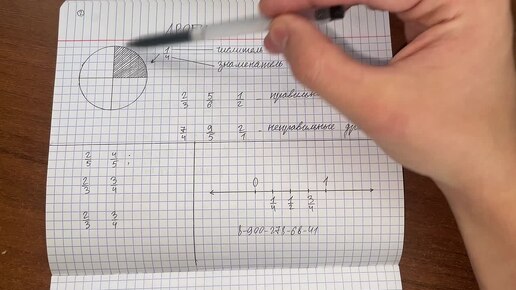 1/4 числитель
знаменатель
2/3 5/6 1/2 - правильные
7/4 9/5 2/1 - неправильные
2/5 4/5 ;
2/3 3/4
2/3 3/4
0 1
1/4 1/2 3/4
8-900-273-68-41